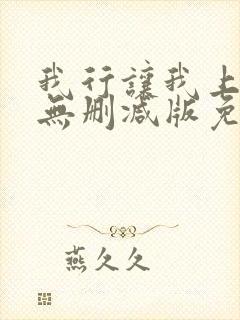 我行讓我上
無刪減版免
燕久久